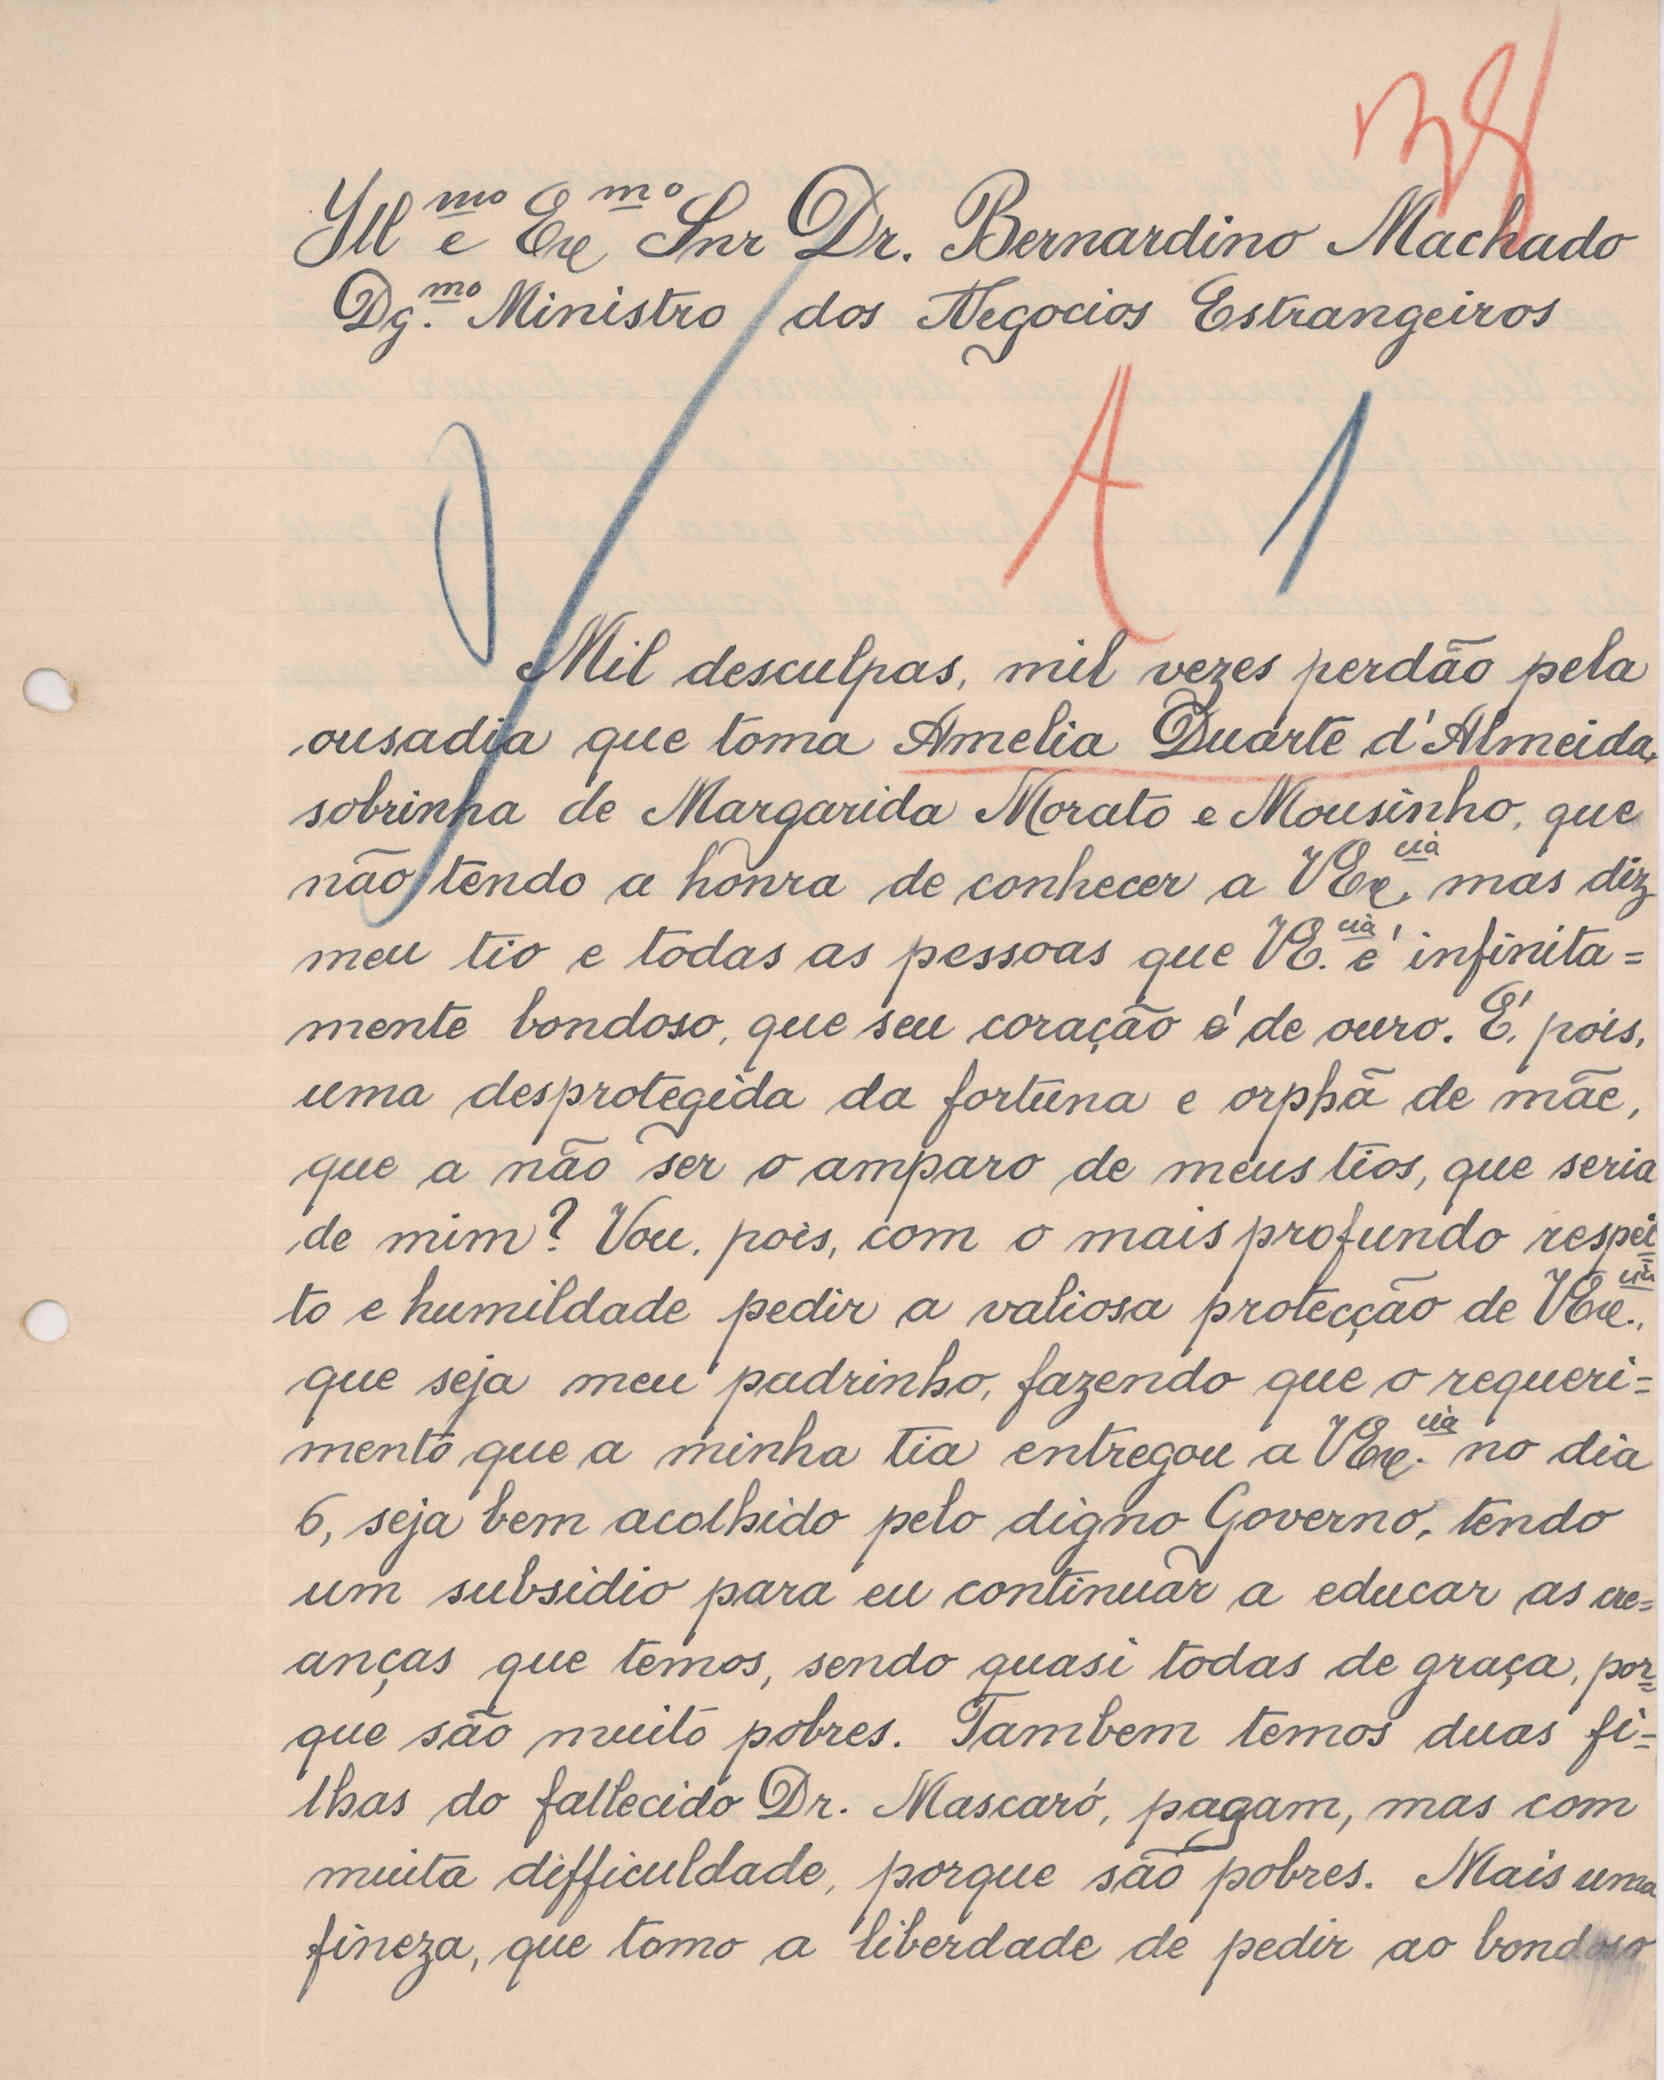 38
Illmo e Exmo Snr Dr. Bernardino Machado
Dg.mo Ministro dos Negocios Estrangeiros
A 1
Mil desculpas, mil vezes perdão pela
ousadia que toma Amelia Duarte d'Almeida,
sobrinha de Margarida Morato e Mousinho, que
não tendo a honra de conhecer a VEx.cia mas diz
meu tio e todas as pessoas que VE.cia é infinita=
mente bondoso, que seu coração é de ouro. É, pois,
uma desprotegida da fortuna e orphã de mãe,
que a não ser o amparo de meus tios, que seria
de mim? Vou, pois, com o mais profundo respei=
to e humildade pedir a valiosa protecção de VEx.cia,
que seja meu padrinho, fazendo que o requeri=
mento que a minha tia entregou a VEx.cia no dia
6, seja bem acolhido pelo digno Governo, tendo
um subsidio para eu continuar a educar as cre=
anças que temos, sendo quasi todas de graça, por=
que são muito pobres. Tambem temos duas fi=
lhas do fallecido Dr. Mascaró, pagam, mas com
muita difficuldade, porque são pobres. Mais uma
fineza, que tomo a liberdade de pedir ao bondoso